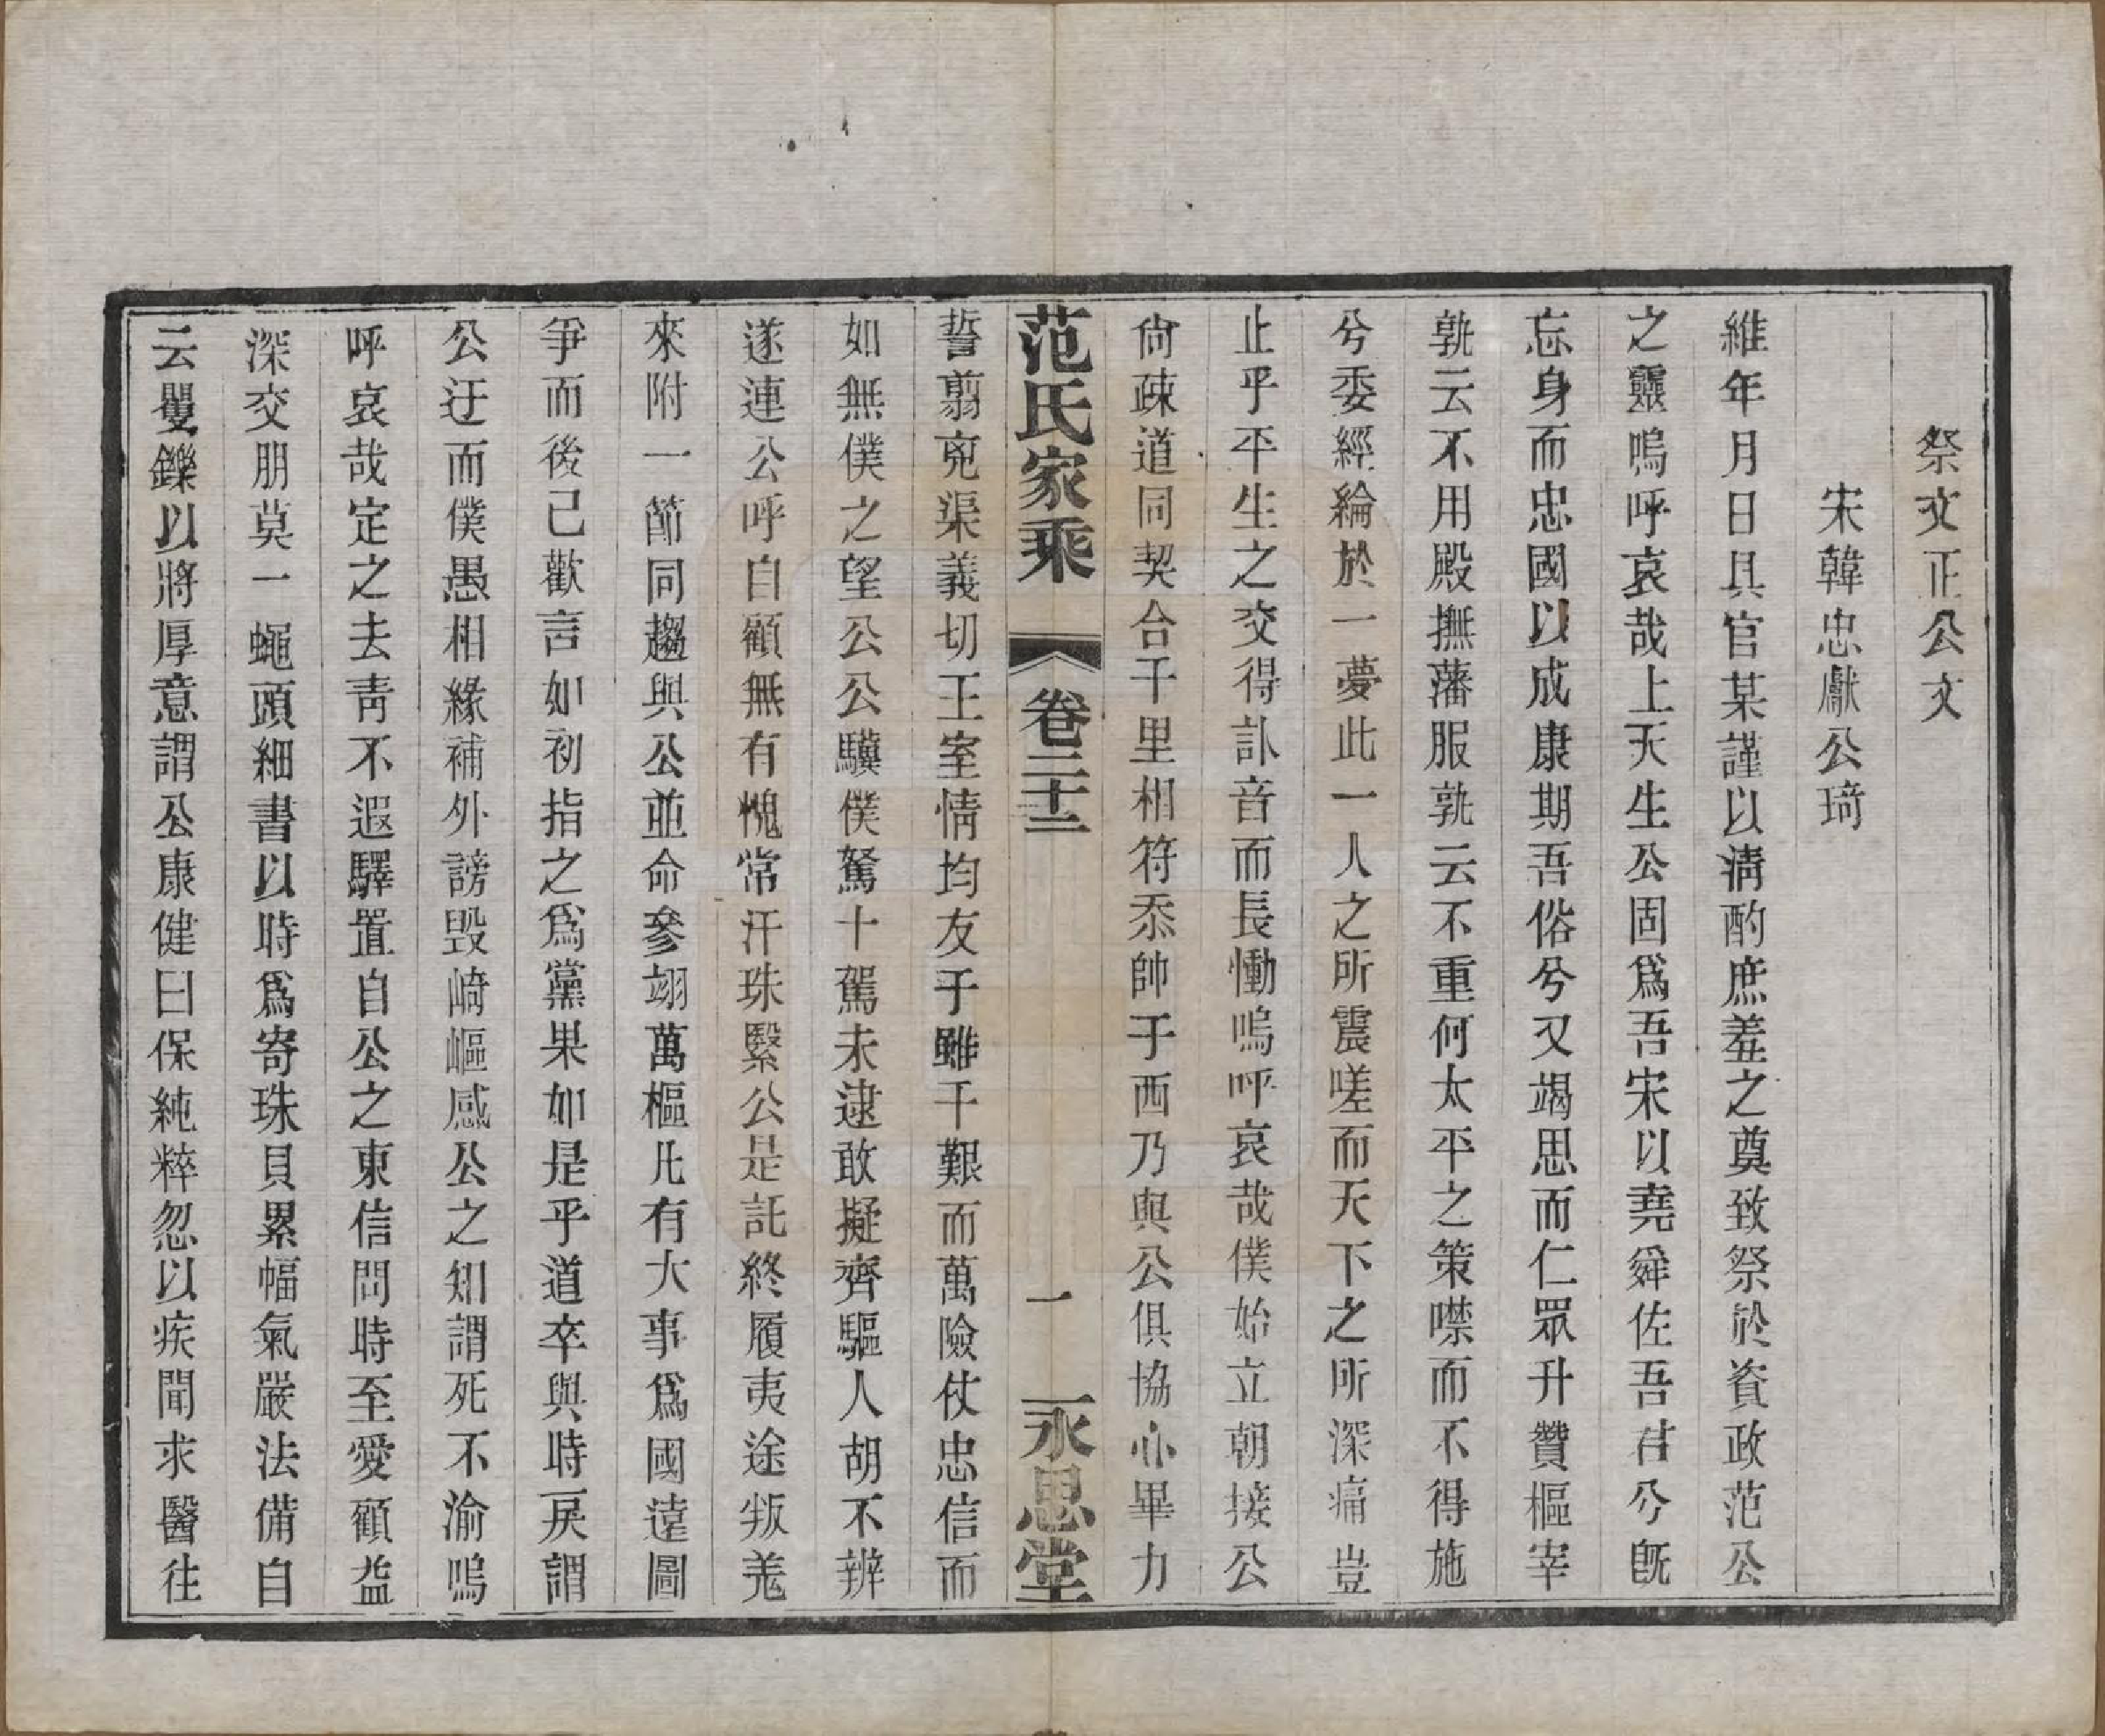 祭文正公文
宋韓忠獻公琦
維年月日具官某謹以淸酌庶羞之奠致祭於資政范公
之靈嗚呼哀哉上天生公固爲吾宋以堯舜佐吾君兮旣
忘身而忠國以成康期吾俗兮又竭思而仁眾升贊樞宰
孰云不用殿撫藩服孰云不重何太平之策噤而不得施
兮委經綸於一夢此一人之所震嗟而天下之所深痛豈
止乎平生之交得訃音而長慟嗚呼哀哉僕始立朝接公
尙疎道同契合千里相符忝帥于西乃與公俱協心畢力
范氏家乘
卷二十二
一
永思堂
誓翦兇渠義切王室情均友于雖千艱而萬險仗忠信而
如無僕之望公公驥僕駑十駕未逮敢擬齊驅人胡不辨
遂連公呼自顧無有愧常汗珠緊公是託終履夷途叛羌
來附一節同趨與公並命參翊萬樞凡有大事爲國遠圖
爭而後己歡言如初指之爲黨果如是乎道卒與時戾謂
公迂而僕愚相緣補外謗毀崎嶇感公之知謂死不渝嗚
呼哀哉定之去靑不遐驛置自公之東信問時至愛顧益
深交朋莫一蠅頭細書以時爲寄珠貝累幅氣嚴法備自
云矍鑠以將厚意謂公康健曰保純粹忽以疾聞求醫往